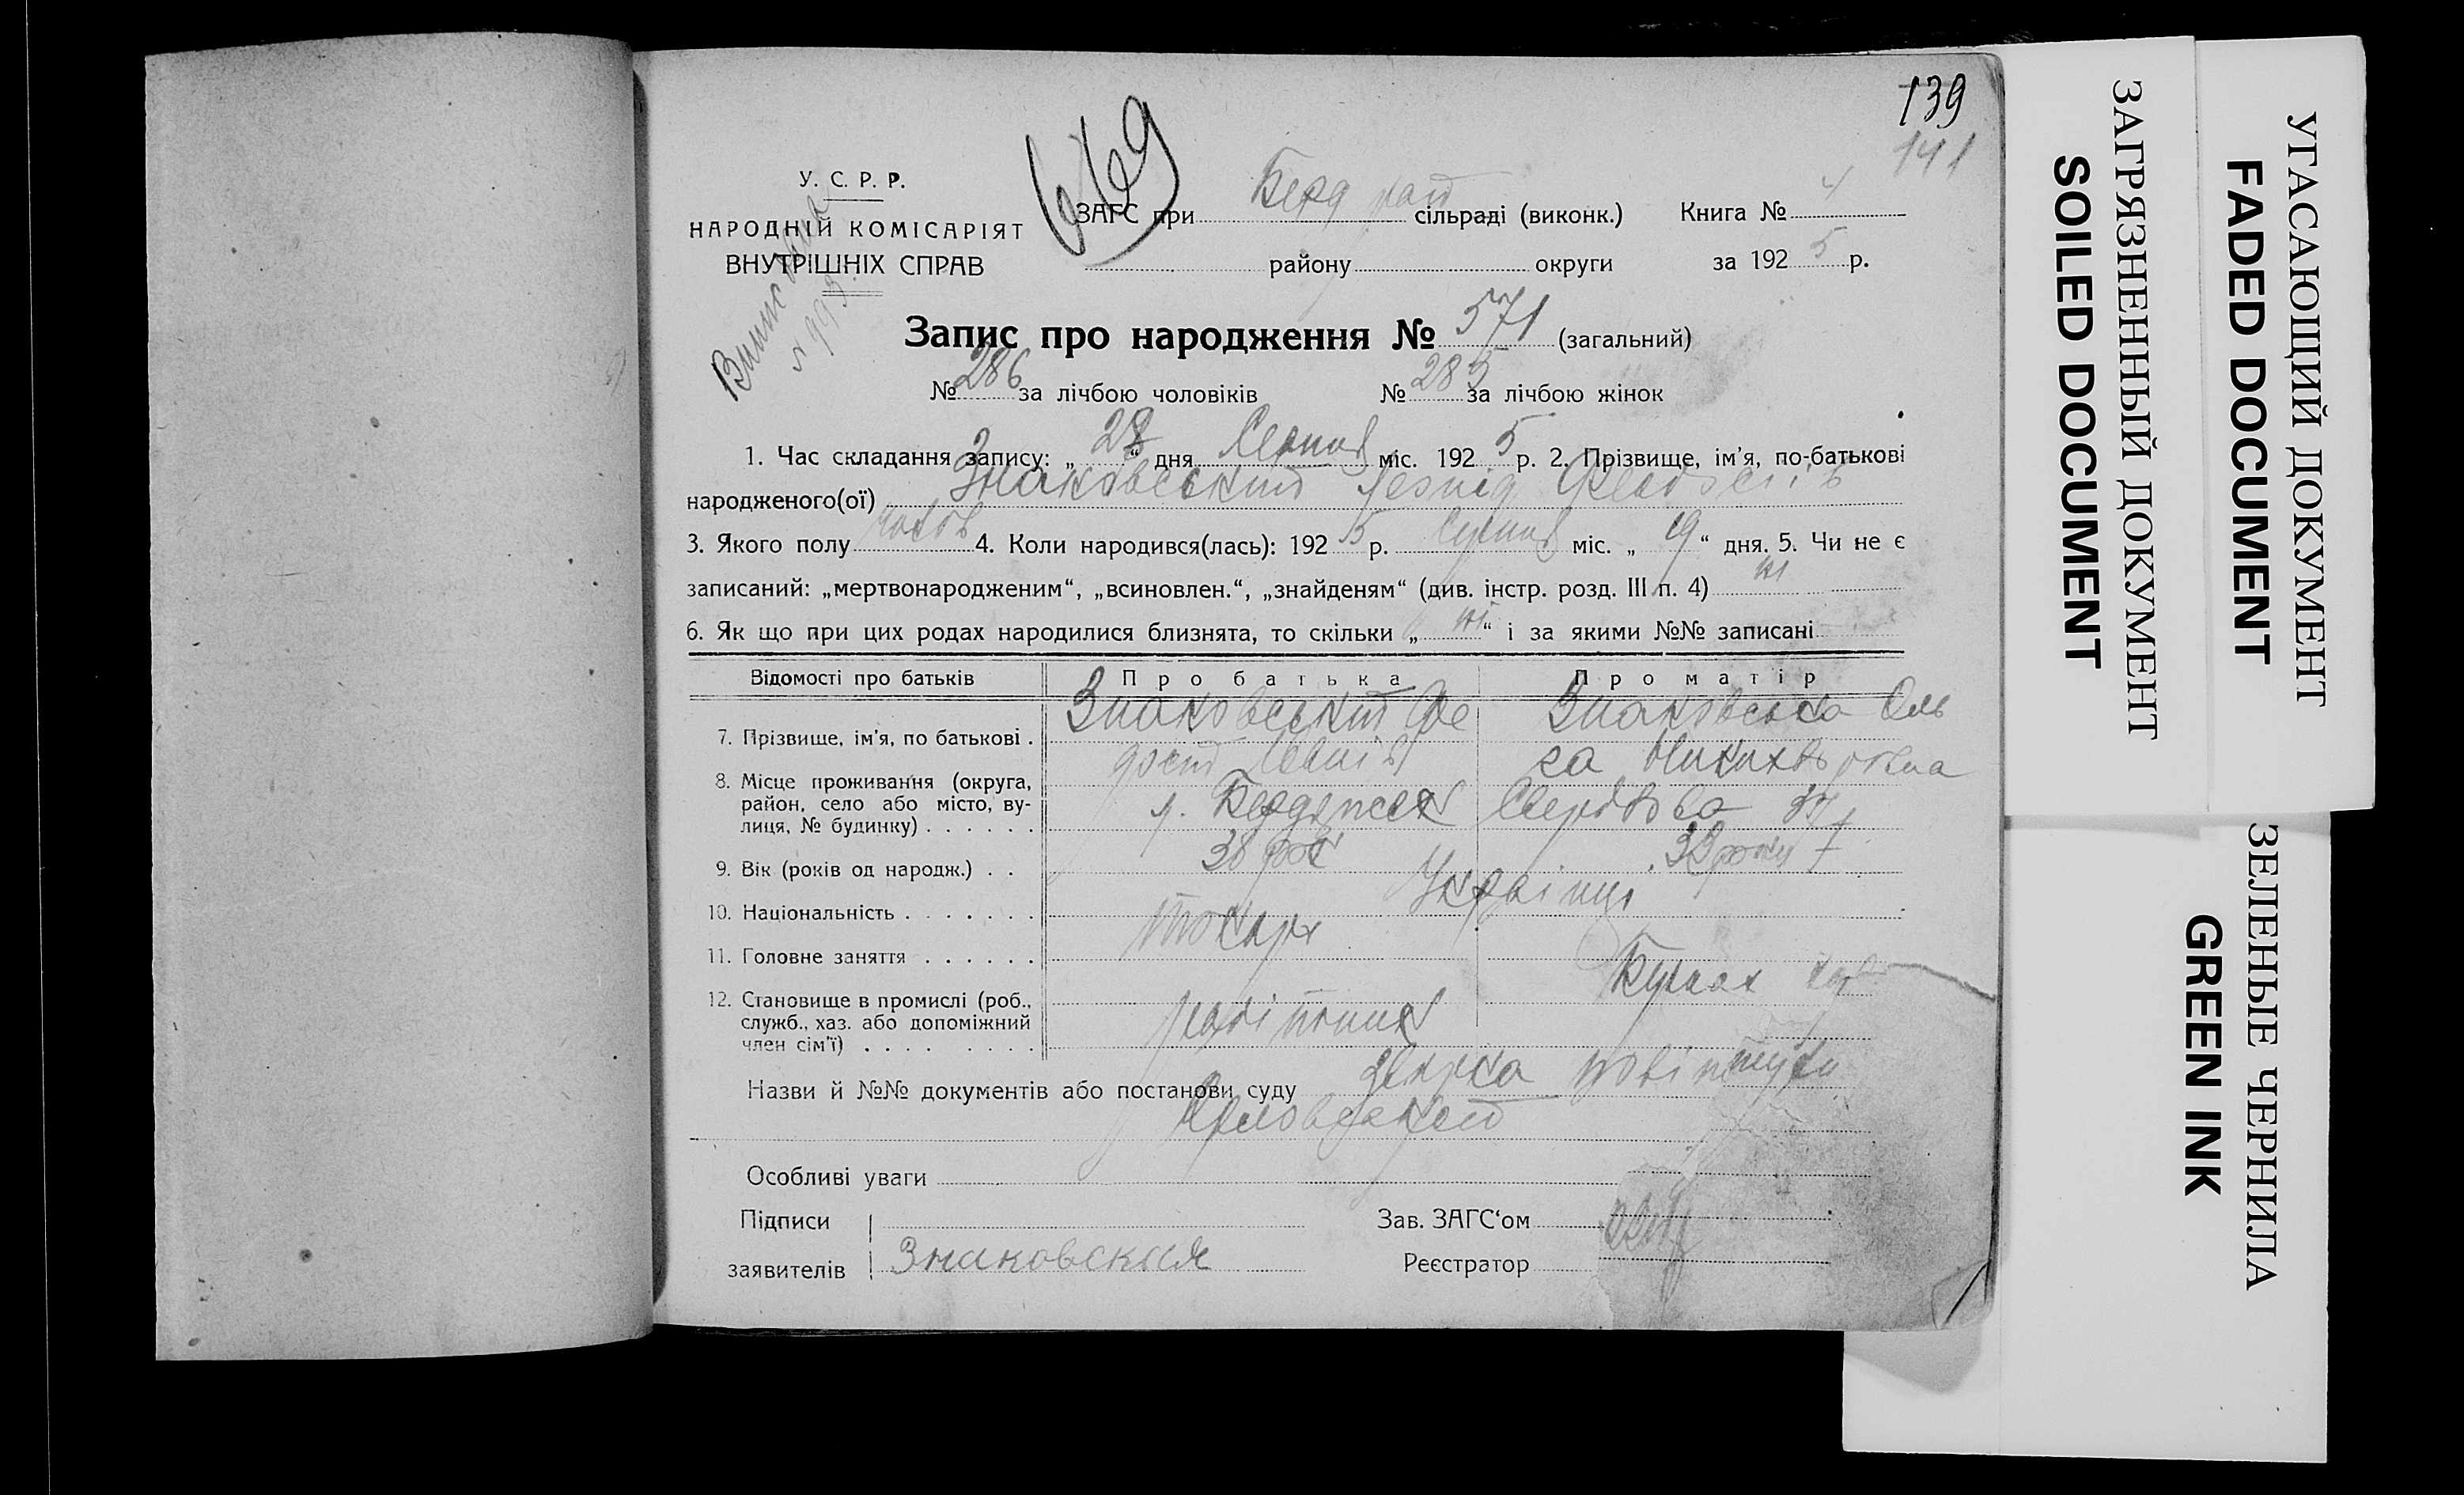 139
141
669
У. С. Р. Р.
НАРОДНІЙ КОМІСАРІЯТ
ВНУТРІШНІХ СПРАВ
ЗАГС при Берд сільраді (виконк.) Книга № 4
району округи за 1925 р.
Запис про народження № 571 (загальний)
№ 286 за лічбою чоловіків № 285 за лічбою жінок
1. Час складання запису: „28“ дня Серпня міс. 1925 р. 2. Прізвище, ім'я, по-батькові
народженого(ої) Знаковський Леонід
3. Якого полу 4. Коли народився(лась): 1925 р. Серпня міс. „19“ дня. 5. Чи не є
записаний: „мертвонародженим“, „всиновлен.“, „знайденям“ (див. інстр. розд. III п. 4) ні
6. Як що при цих родах народилися близнята, то скільки „ні“ і за якими №№ записані
Відомості про батьків Про батька Про матір
7. Прізвище, ім'я, по батькові . Знаковський Фе Знаковська Оль
га
8. Місце проживання (округа,
район, село або місто, ву-
лиця, № будинку) . . . . . . Бердичев 37
9. Вік (років од народж.) . . 38 рок 32 року
10. Національність . . . . . . . Українці
11. Головне заняття . . . . . . токарь
12. Становище в промислі (роб.,
служб., хаз. або допоміжний
член сім'ї) . . . . . . . . . робітник
Назви й №№ документів або постанови суду
Особливі уваги
Підписи Зав. ЗАГС‘ом
заявителів Знаковская Реєстратор
ЗАГРЯЗНЕННЫЙ ДОКУМЕНТ
SOILED DOCUMENT
УГАСАЮЩИЙ ДОКУМЕНТ
FADED DOCUMENT
ЗЕЛЕНЫЕ ЧЕРНИЛА
GREEN INK